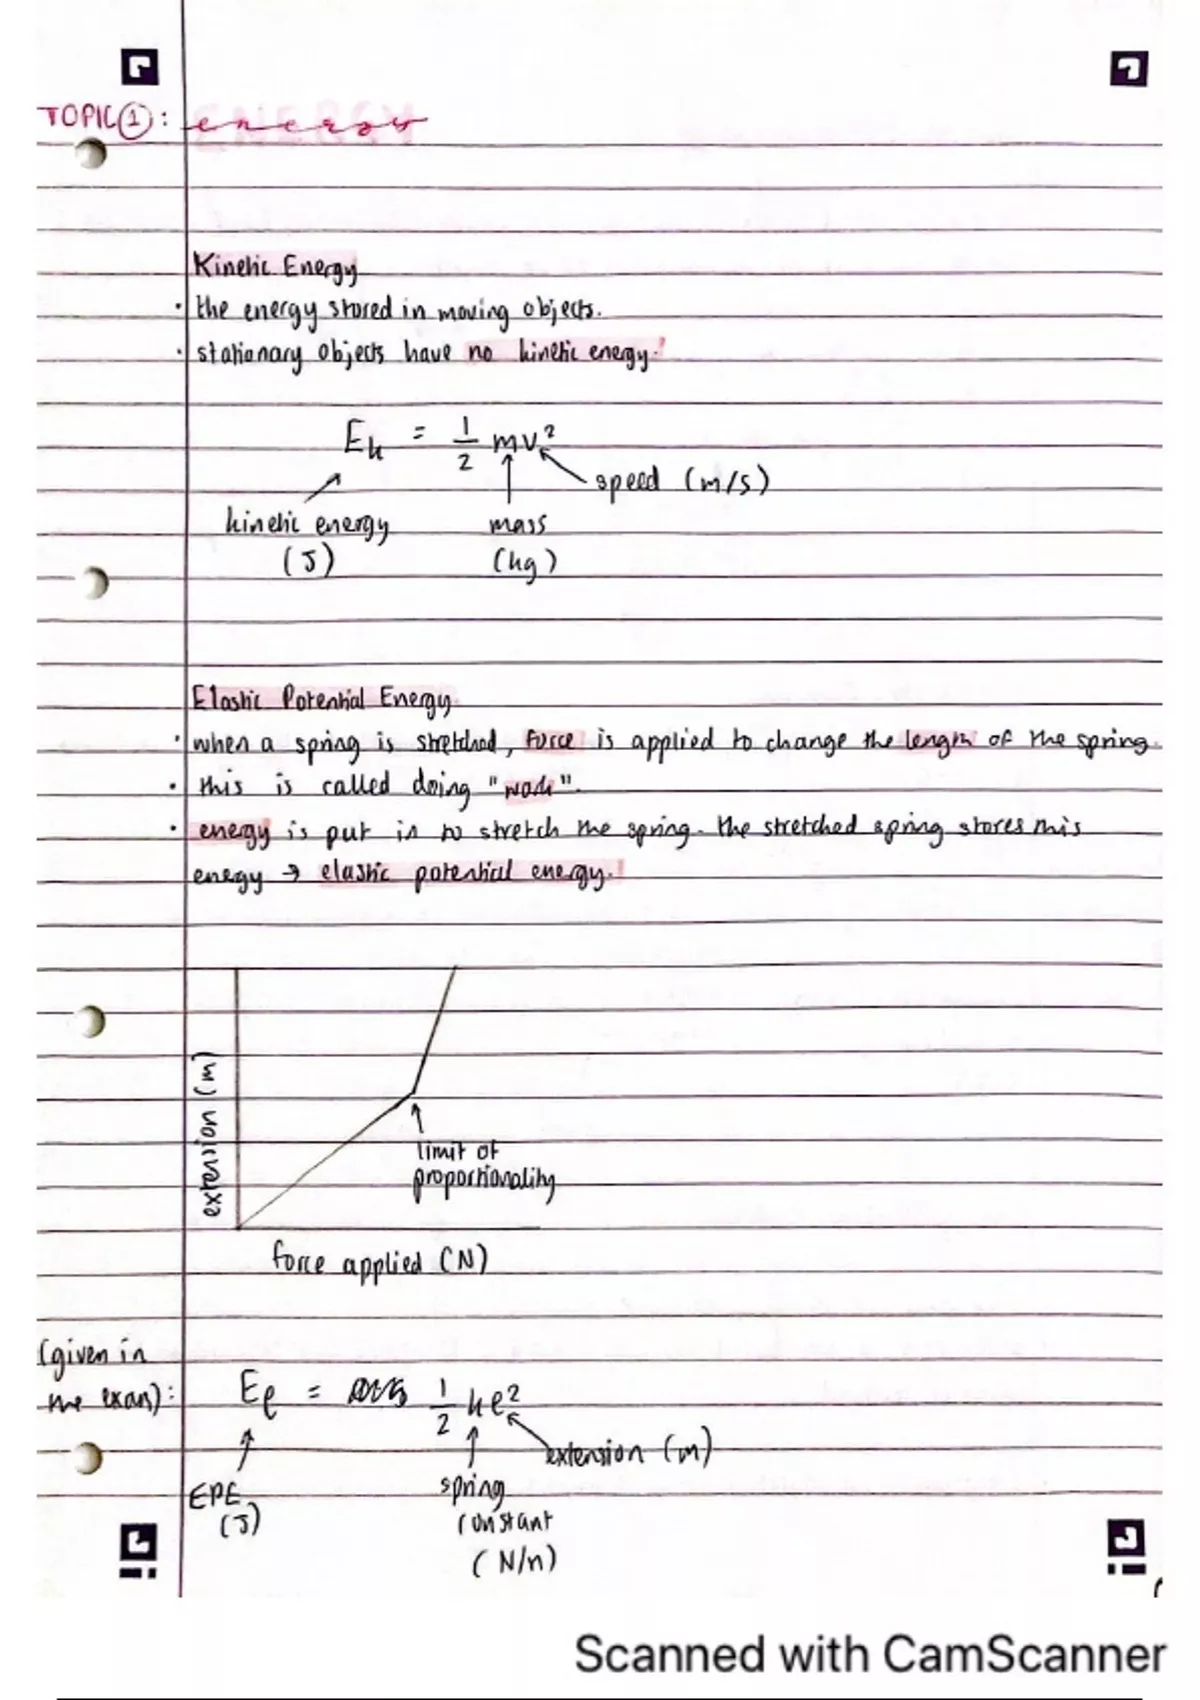 TOPIC ①: energy
Kinetic Energy
· the energy stored in moving objects.
· stationary objects have no kinetic energy.
Ek = 1/2 mv²
speed (m/s)
kinetic energy
(J)
mass
(kg)
Elastic Potential Energy
· when a spring is stretched, force is applied to change the length of the spring.
· this is called doing "work".
· energy is put in to stretch the spring. the stretched spring stores this
energy → elastic potential energy.
extension (m)
limit of
proportionality
force applied (N)
(given in
the exam):
Ee = 1/2 ke²
extension (m)
EPE
(J)
spring
constant
(N/n)
Scanned with CamScanner